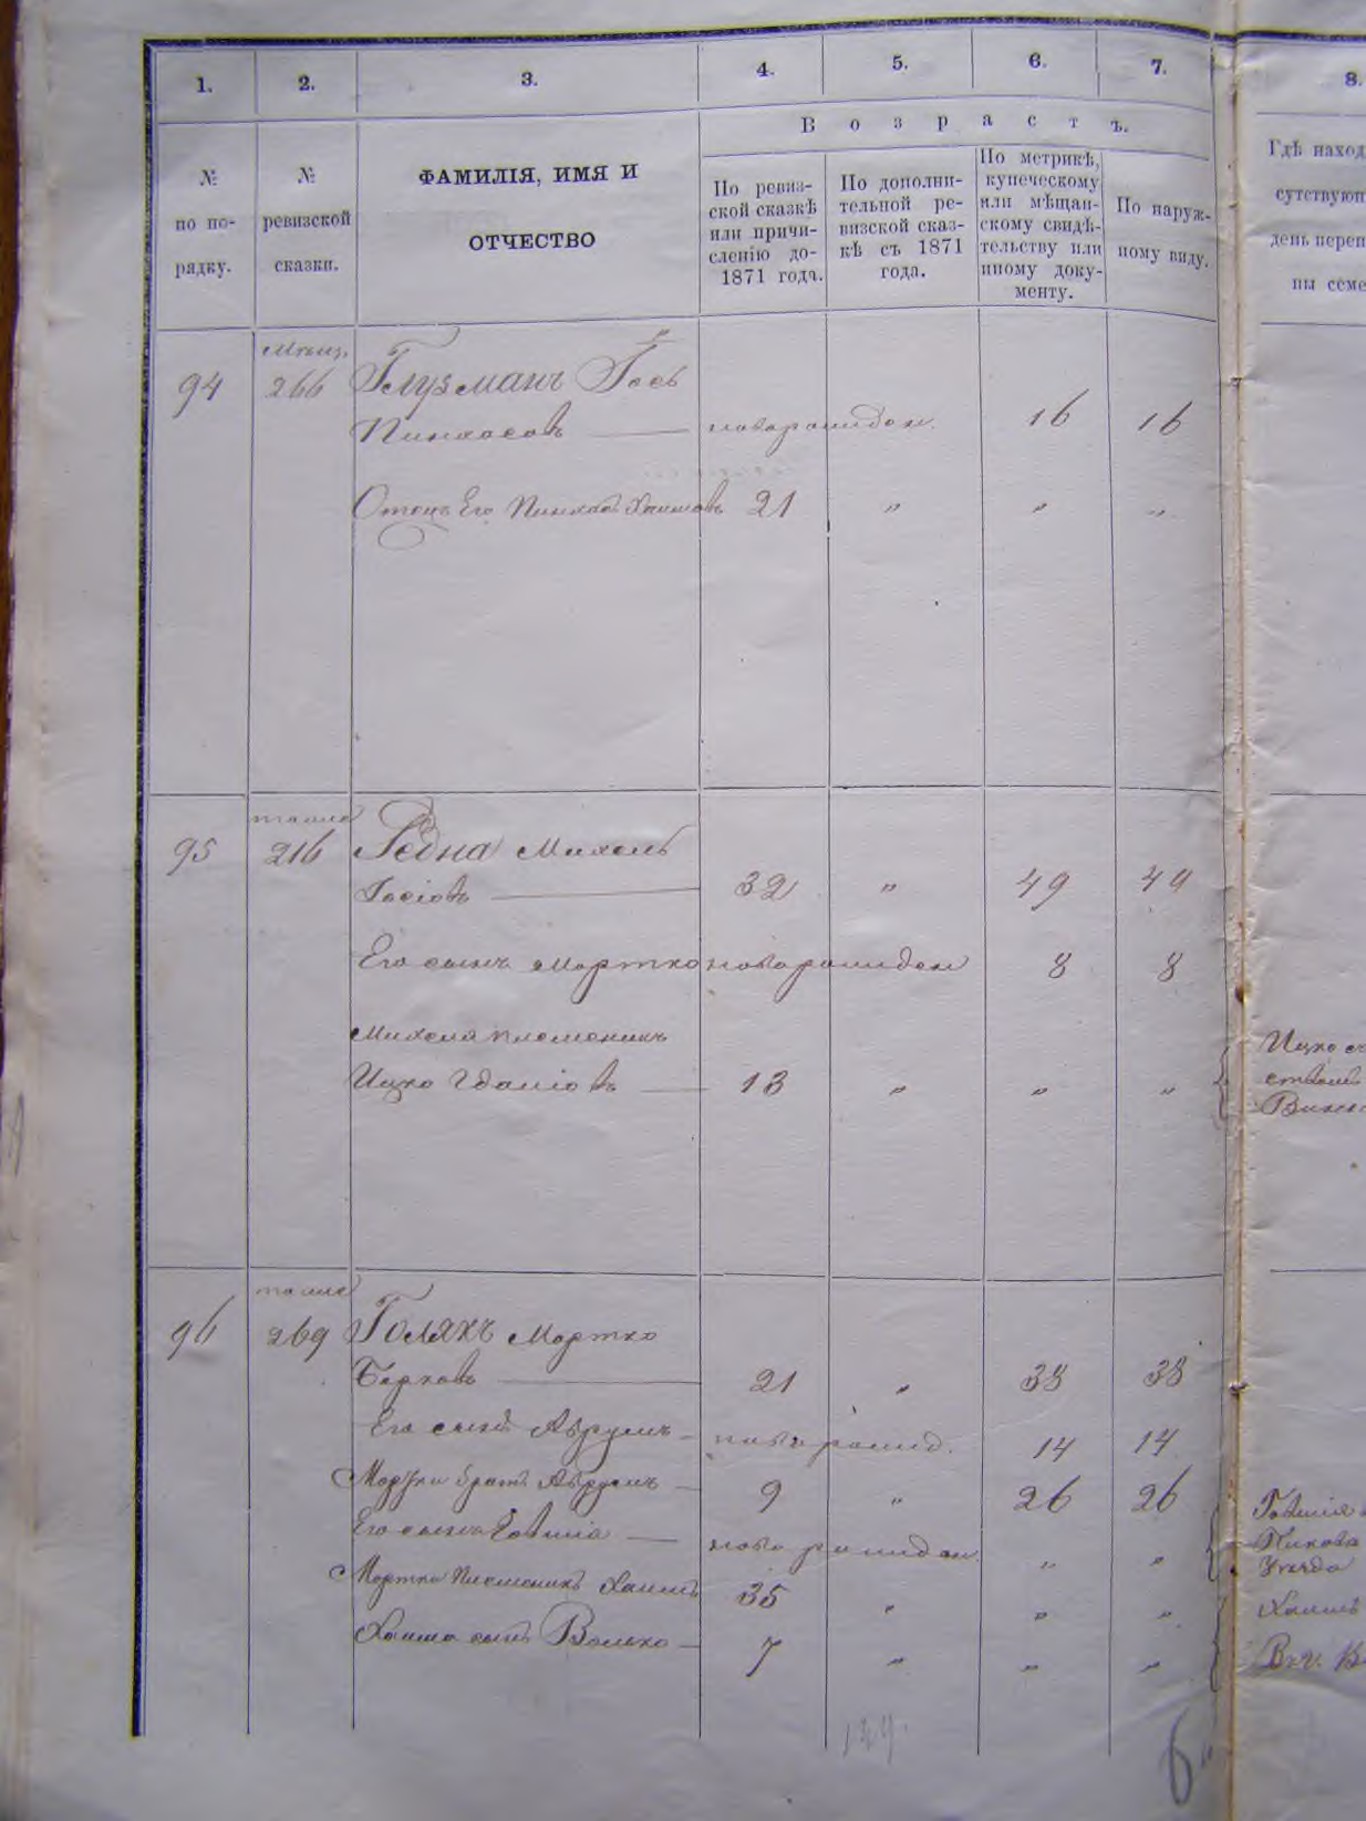 1. 2. 3. 4. 5. 6. 7. 8.
Возрастъ.
№ по по-рядку.
№ ревизской сказки.
ФАМИЛІЯ, ИМЯ И
ОТЧЕСТВО
По ревиз-
ской сказкѣ
или причи-
сленію до-
1871 года.
По дополни-
тельной ре-
визской сказ-
кѣ съ 1871
года.
По метрикѣ,
купеческому
или мѣщан-
скому свидѣ-
тельству или
иному доку-
менту.
По наруж-
ному виду.
Гдѣ наход
сутствующ
день переп
ны семе
Мѣщ.
94 266 Глузманъ Іось
Пинхасовъ — новорожден. 16 16
Отецъ Его Пинхасъ Хаимовъ 21 " " "
тоже
95 216 Редна Михель
Іосіовъ — 32 " 49 49
Его сынъ Мортко новорожден 8 8
Михеля племеникъ
Ицко Гдаліовъ — 13 " " "
Ицко
96 269 Голякъ Мортко
тоже
Берковъ — 21 " 38 38
Его сынъ Абрумъ — новорожд. 14 14
Мортки братъ Абрумъ — 9 " 26 26
Его сынъ — новорожден. " "
Мортки племеникъ Хаимъ 35 " " "
Хаима сынъ Волько — 7 " " "
Хаимъ
6